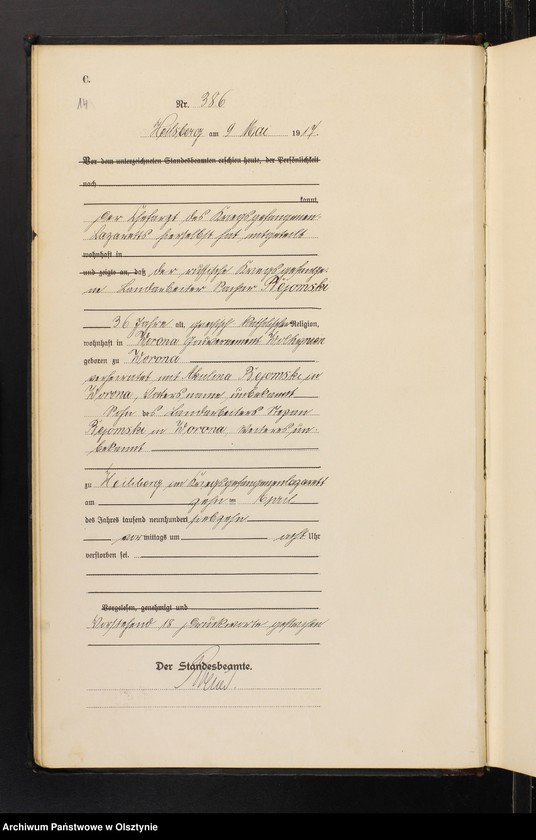 C.
14
Nr. 386
Heilsberg am 9 Mai 1917.
Vor dem unterzeichneten Standesbeamten erschien heute, der Persönlichkeit
nach
kannt,
Der Chefarzt des Kriegsgefangenen-
Lazaretts hierselbst hat mitgeteilt
wohnhaft in
und zeigte an, daß der russische Kriegsgefange-
ne Landarbeiter
36 Jahre alt, griechisch katholischer Religion,
wohnhaft in Worona Gouvernement Wolhynien
geboren zu Worona
verheiratet mit Akulina in
Worona, Vatersname unbekannt
Sohn des Landarbeiters
in Worona, weiteres un-
bekannt
zu Heilsberg im Kriegsgefangenenlazarett
am zehnten April
des Jahres tausend neunhundert siebzehn
vormittags um acht Uhr
verstorben sei.
Vorgelesen, genehmigt und
Vorstehend 18 Druckworte gestrichen
Der Standesbeamte.
Archiwum Państwowe w Olsztynie